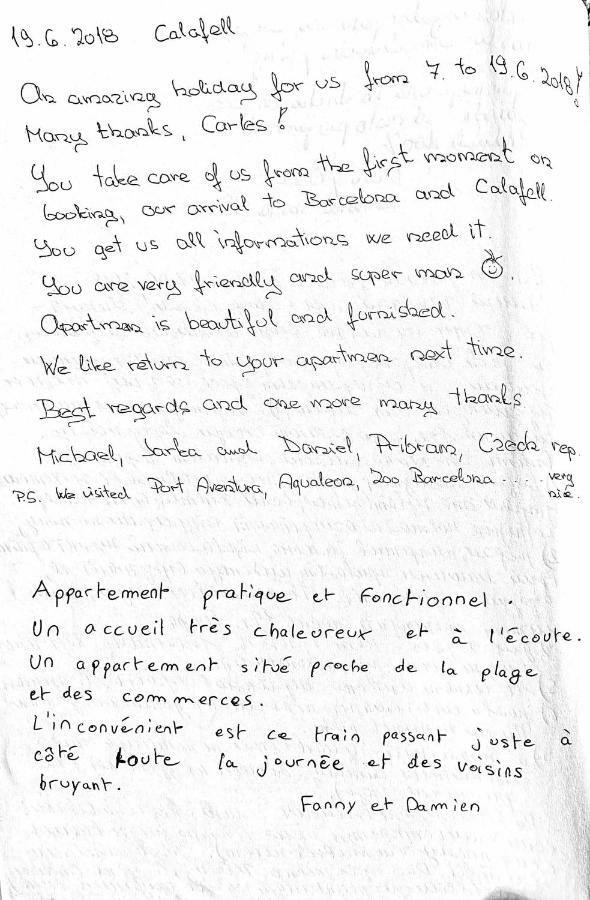 19.6.2018 Calafell
An amazing holiday for us from 7. to 19.6.2018!
Many thanks, Carles!
You take care of us from the first moment on
booking, our arrival to Barcelona and Calafell.
You get us all informations we need it.
You are very friendly and super man ☺.
Apartmen is beautiful and furnished.
We like return to your apartmen next time.
Best regards and one more many thanks
Michael, Jarka and Daniel, Pribram, Czech rep.
P.S. We visited Port Aventura, Aqualeon, zoo Barcelona..... very
nice.
Appartement pratique et fonctionnel.
Un accueil très chaleureux et à l'écoute.
Un appartement situé proche de la plage
et des commerces.
L'inconvénient est ce train passant juste à
côté toute la journée et des voisins
bruyant.
Fanny et Damien